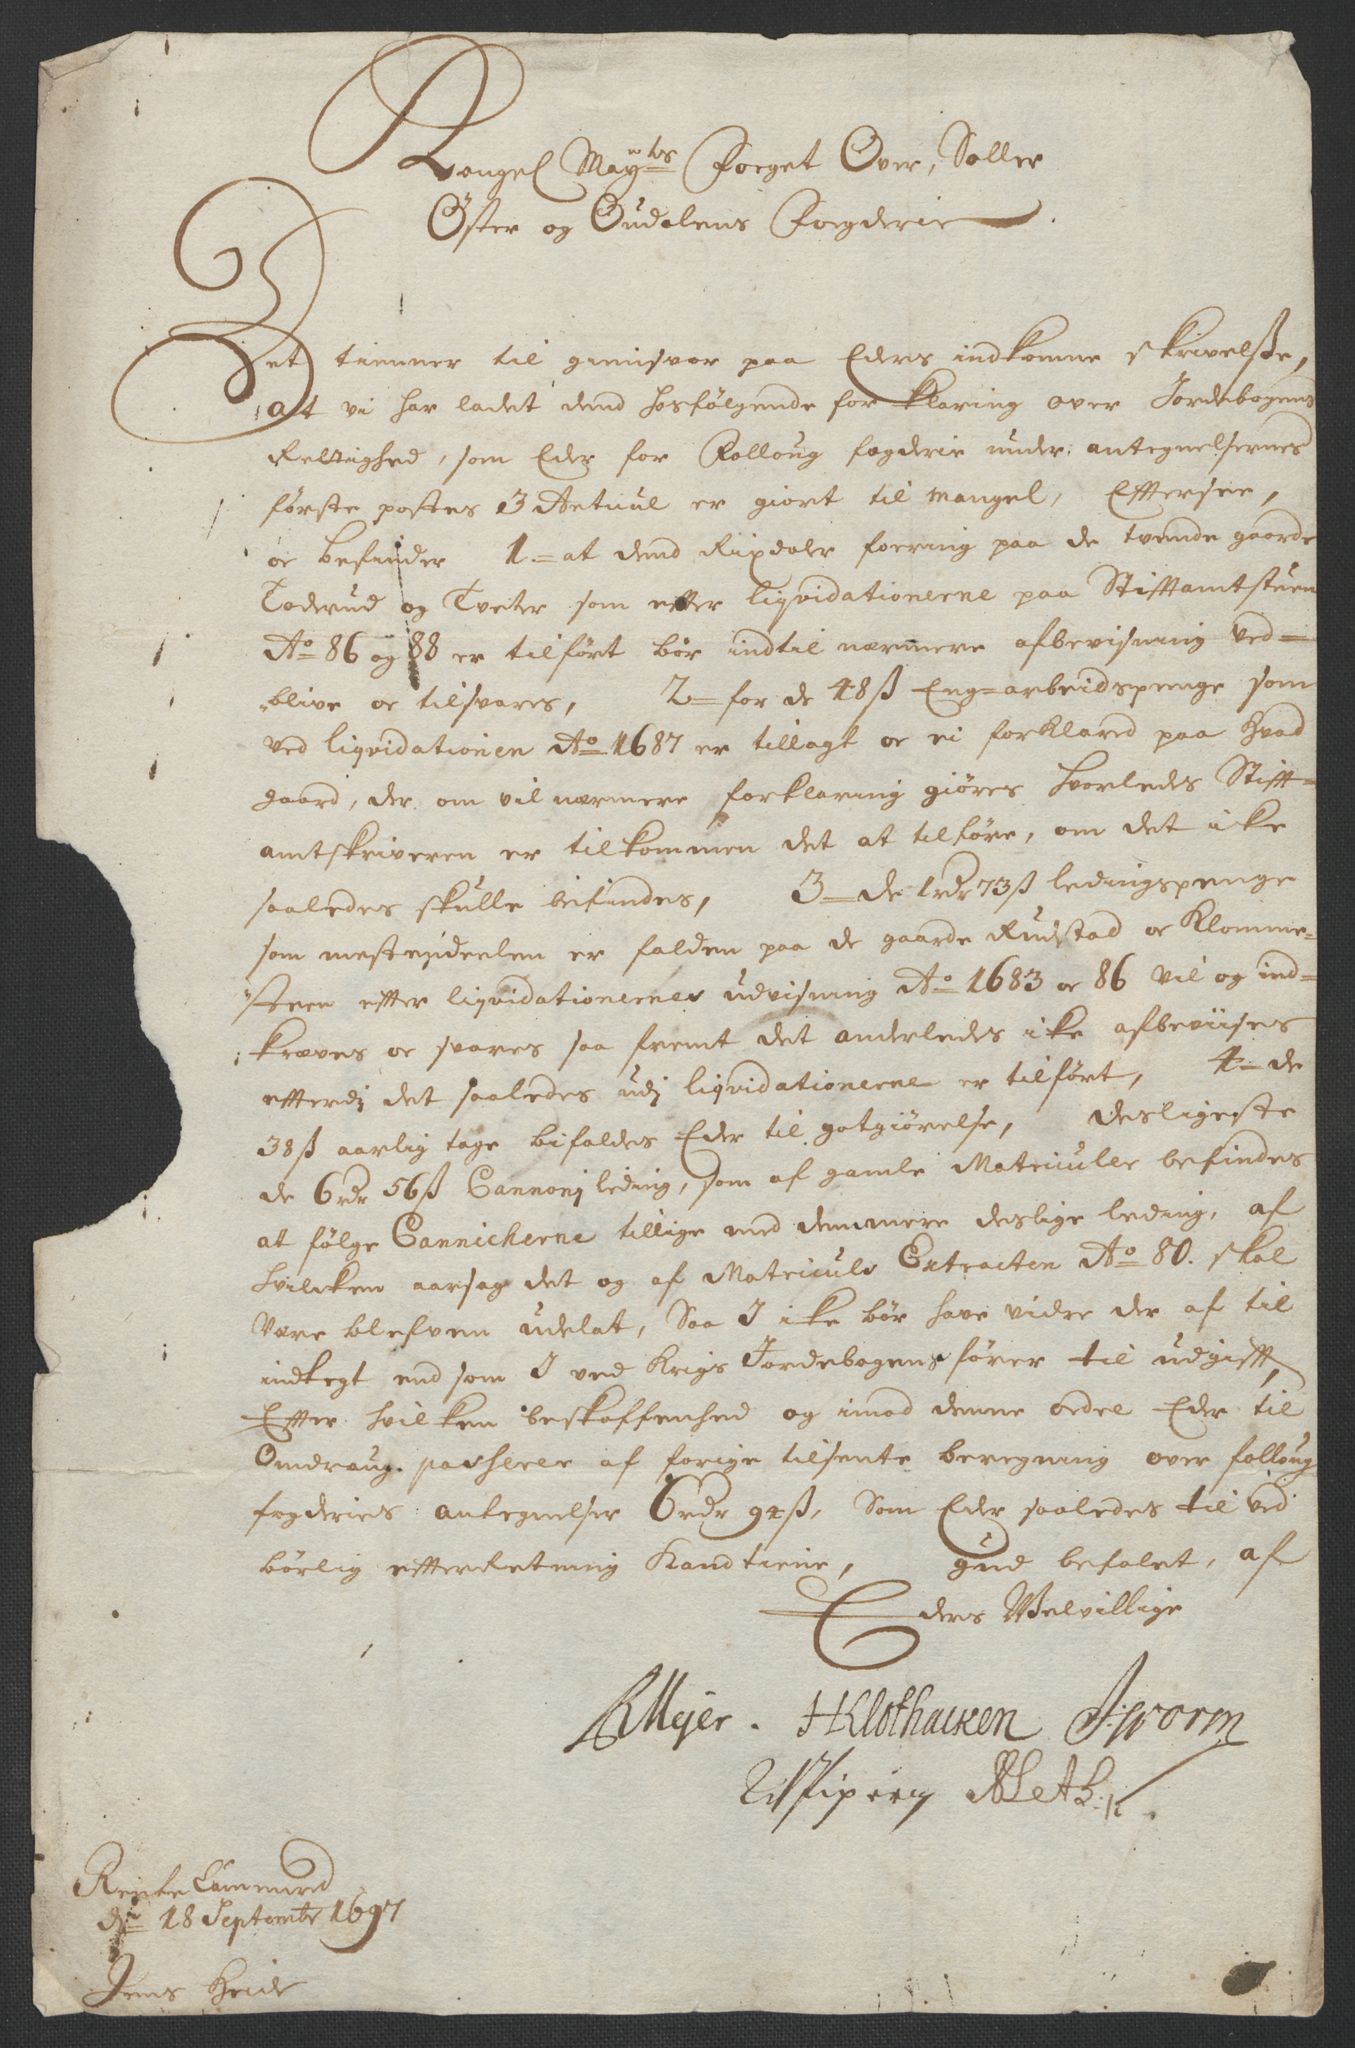 Kongel May.ts Foeget Over, Soller
Øster og Oudalens Foegderie
Det tienner til giensvar paa Eders indkomne skrivelsse,
at vi har ladet dend hosfølgende forklaring over Jordebogens
Rettighed, som Eder for Folloug fogderie under antegnelsernes
første postes 3 Articul er giort til mangel, Effersee,
oc befinder 1 = at dend Rixdaler foering paa de tvende gaarde
Toderud og Tveter som efter liqvidationerne paa Stifftamtstuen
Ao 86 og 88 er tilført bør indtil nærmere afbevisning ved=
blive oc tilsvares, 2 = for de 48 ß Eng=arbeidspenge som
ved liqvidationen Ao 1687 er tillagt oc ei forklared paa hvad
gaard, der om vil nærmere forklaring giøres hvorledes Stifft=
amtskriveren er tilkommen det at tilføre, om det icke
saaledes skulle befindes, 3 = de 1 rdr 73 ß ledingspenge
som mestendeelen er falden paa de gaarde Rudstad oc Klomme=
steen efter liqvidationernes udvisning Ao 1683 oc 86 vil og ind=
kræves oc svares saa fremt det anderledes icke afbeviises
efterdj det saaledes udj liqvidationerne er tilført, 4 = de
38 ß aarlig tage bifaldes Eder til gotgiørelse, desligeste
de 6 rdr 56 ß Cannonj leding, som af gamle Matriculer befindes
at følge Cannicherne tillige med demmere deslige leding, af
hvilcken aarsag det og af Matriculs Extracten Ao 80. skal
være blefven udelat, Saa I icke bør have vidre der af til
indtegt end som I ved Krigs Jordebogens fører til udgifft,
Efter hvilken beskaffenhed og imod denne ordre Eder til
Omdraug. passerer af forige tilsente beregning over folloug
fogderies antegnelser 6 rdr 94 ß, Som Eder saaledes til ved
børlig efterretning Kand tiene, gud befalet, af
Eders Welvillige
Meyer. HKlothacken J: Worm
Rente Cammered
dn 18 Septembr 1697
Jens Heide